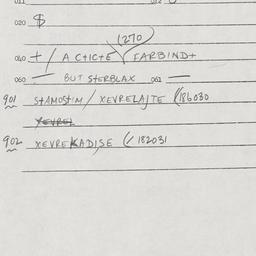 020 $
(1270)
040 + / A CTICTE FARBIND+
060 — BUT STERBLAX 061 —
901 STAMOSTIM / XEVRELAJTE (186030
XEVREL
902 XEVREKADISE ( 182031